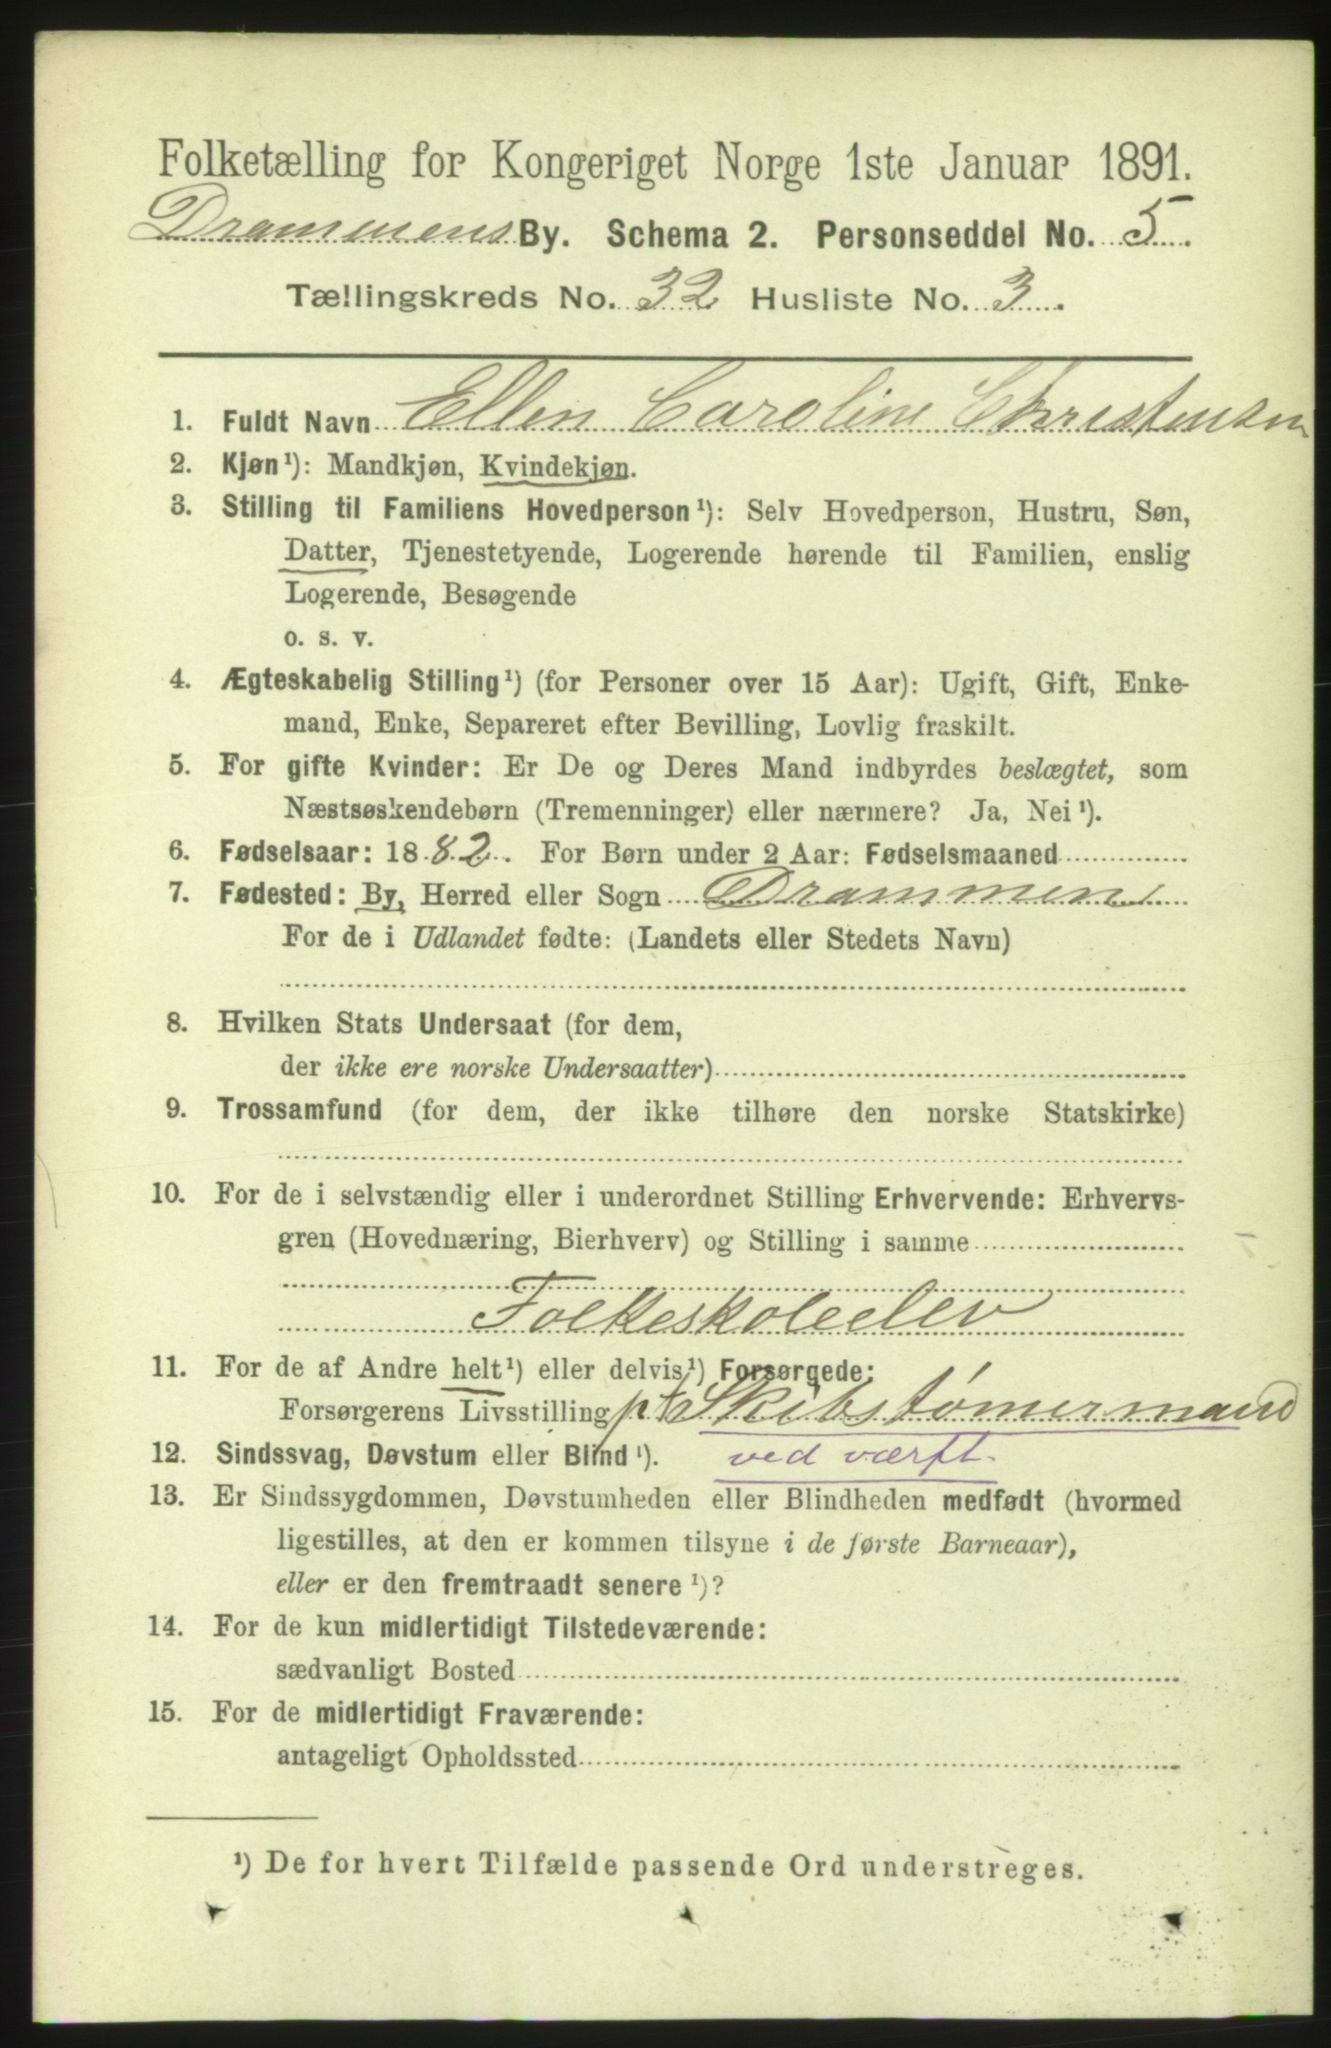 Folketælling for Kongeriget Norge 1ste Januar 1891.
Drammens By. Schema 2. Personseddel No. 5.
Tællingskreds No. 32 Husliste No. 3.
1. Fuldt Navn Ellen Caroline Christensen
2. Kjøn¹): Mandkjøn, Kvindekjøn.
3. Stilling til Familiens Hovedperson¹): Selv Hovedperson, Hustru, Søn,
Datter, Tjenestetyende, Logerende hørende til Familien, enslig
Logerende, Besøgende
o. s. v.
4. Ægteskabelig Stilling¹) (for Personer over 15 Aar): Ugift, Gift, Enke-
mand, Enke, Separeret efter Bevilling, Lovlig fraskilt.
5. For gifte Kvinder: Er De og Deres Mand indbyrdes beslægtet, som
Næstsøskendebørn (Tremenninger) eller nærmere? Ja, Nei¹).
6. Fødselsaar: 1882. For Børn under 2 Aar: Fødselsmaaned
7. Fødested: By, Herred eller Sogn Drammen
For de i Udlandet fødte: (Landets eller Stedets Navn)
8. Hvilken Stats Undersaat (for dem,
der ikke ere norske Undersaatter)
9. Trossamfund (for dem, der ikke tilhøre den norske Statskirke)
10. For de i selvstændig eller i underordnet Stilling Erhvervende: Erhvervs-
gren (Hovednæring, Bierhverv) og Stilling i samme
Folkeskoleelev
11. For de af Andre helt¹) eller delvis¹) Forsørgede:
Forsørgerens Livsstilling Skibstømermand
12. Sindssvag, Døvstum eller Blind¹). ved værft.
13. Er Sindssygdommen, Døvstumheden eller Blindheden medfødt (hvormed
ligestilles, at den er kommen tilsyne i de første Barneaar),
eller er den fremtraadt senere¹)?
14. For de kun midlertidigt Tilstedeværende:
sædvanligt Bosted
15. For de midlertidigt Fraværende:
antageligt Opholdssted
¹) De for hvert Tilfælde passende Ord understreges.